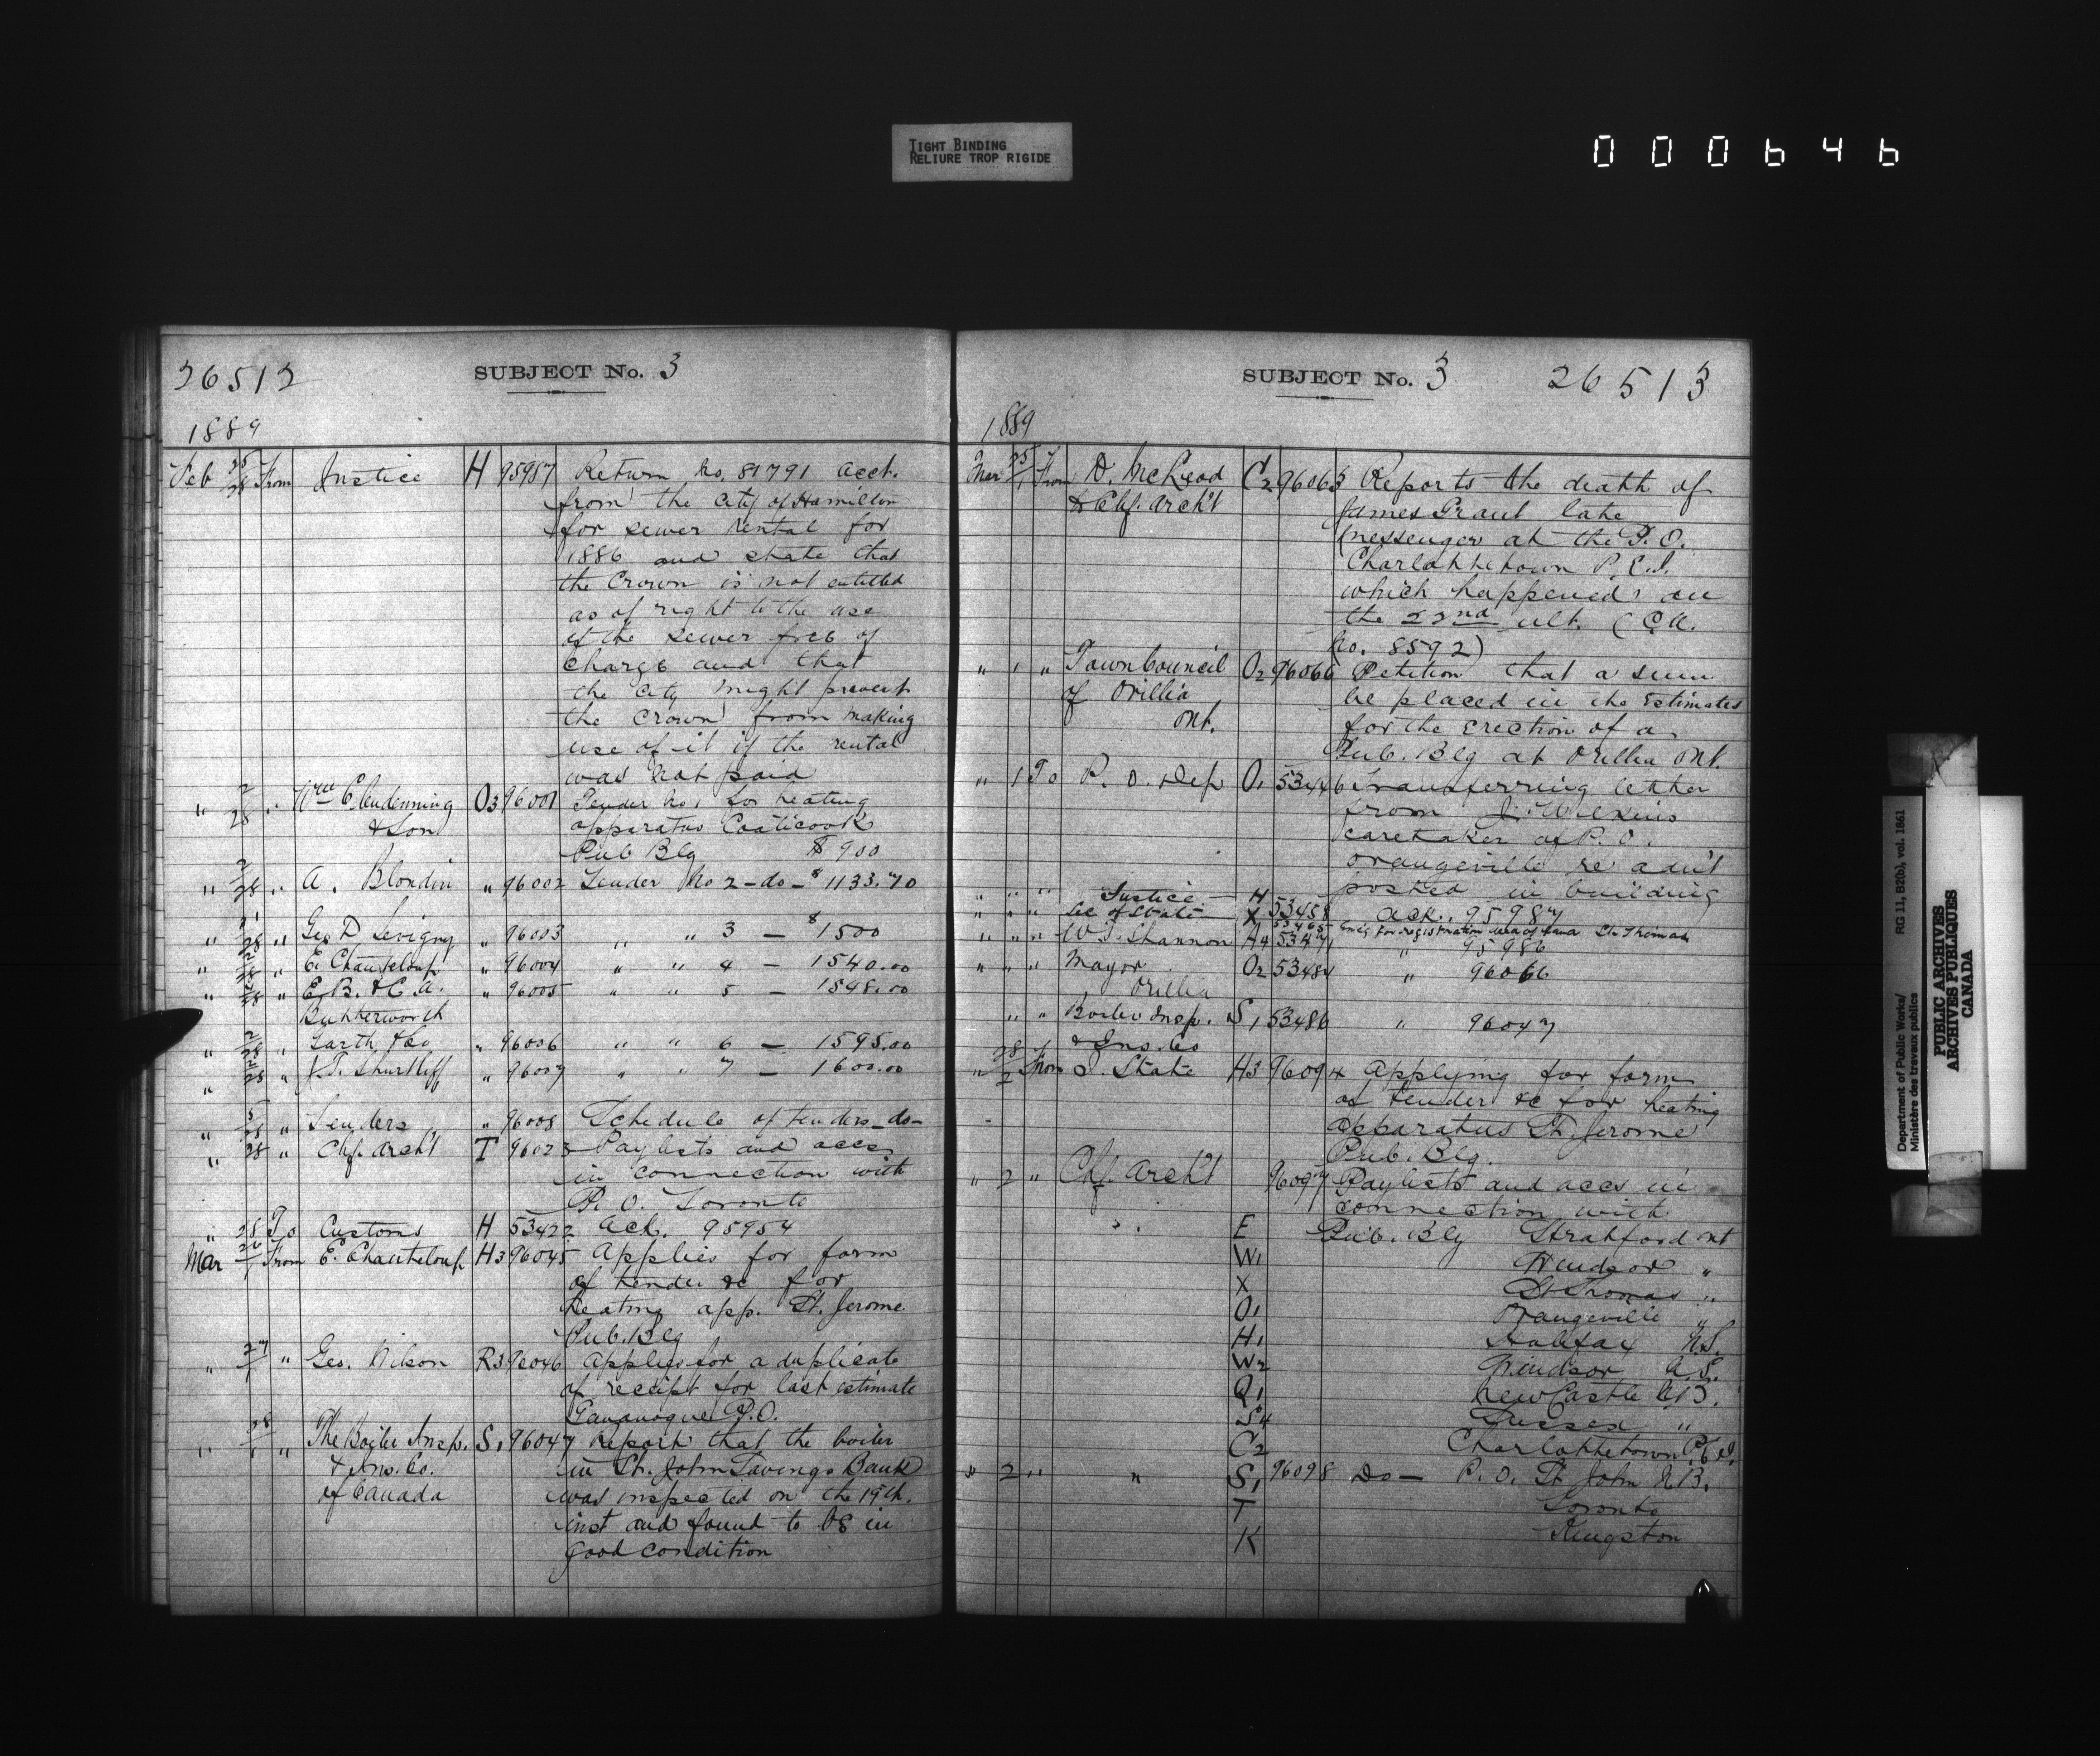 TIGHT BINDING
RELIURE TROP RIGIDE
000646
26512
SUBJECT No. 3
1889
Feb 25/28 From Justice H 95957 Return No. 81791 acct.
from the City of Hamilton
for sewer rental for
1886 and state that
the Crown is not entitled
as of right to the use
of the sewer free of
charge and that
the City might prevent
the Crown from making
use of it if the rental
was not paid
" 2/28 " Wm Clendenning O3 96001 Tender No 1 for heating
& Son apparatus Coaticook
Pub Blg $900
" 2/28 " A. Blondin " 96002 Tender No 2 - do - $1133.70
" 1/28 " Geo D Levigny " 96003 " " 3 — $1500
" 2/28 " E. Chanteloup " 96004 " " 4 — 1540.00
" 2/28 " E. B. & C. A. " 96005 " " 5 — 1548.00
Butterworth
" 2/28 " Garth & Co " 96006 " " 6 — 1595.00
" 2/28 " J. T. Shurtliff " 96007 " " 7 — 1600.00
" 5/28 " Tenders " 96008 Schedule of tenders - do -
" 28 " Chf. Archt T 96023 Paylists and accs
in connection with
P. O. Toronto
" 28 To Customs H 53422 Ack. 95954
Mar 26/1 From E. Chanteloup H3 96045 Applies for form
of tender &c for
heating app. St. Jerome
Pub. Blg
" 27/1 " Geo. Wilson R3 96046 Applies for a duplicate
of receipt for last estimate
Gananoque P.O.
" 28/1 " The Boiler Insp. S1 96047 Report that the boiler
& Ins. Co. in St. John Savings Bank
of Canada was inspected on the 19th.
inst and found to be in
good condition
SUBJECT No. 3
26513
1889
Mar 25/1 From D. McLeod C2 96063 Reports the death of
& Chf. Archt James Grant late
messenger at the P.O.
Charlottetown P.E.I.
which happened on
the 22nd ult. (C.A.
No. 8592)
" 1 " Town Council O2 96066 Petition that a sum
of Orillia be placed in the Estimates
Ont. for the erection of a
Pub. Blg at Orillia Ont.
" 1 To P. O. Dep O1 53446 Transferring letter
from J. Wilkins
caretaker of P. O.
Orangeville re advt
posted in building
" " " Justice H 53458 Ack. 95987
" " " Sec of State X 53465 for registration deed of land St. Thomas
" " " W. J. Shannon A4 53471 " 95986
" " " Mayor O2 53484 " 96066
Orillia
" " Boiler Insp. S1 53486 " 96047
& Ins. Co
" 28/2 From J. State H3 96094 Applying for form
of tender &c for heating
apparatus St. Jerome
Pub. Blg.
" 2 " Chf. Archt 96097 Paylists and accs in
connection with
E Pub. Blg Stratford Ont
W1 Windsor "
X St Thomas "
O1 Orangeville "
H1 Halifax N.S.
W2 Windsor N.S.
Q1 New Castle N.B.
S4 Sussex "
C2 Charlottetown P.E.I.
" 2 " " S1 96098 Do — P. O. St John N.B.
T Toronto
K Kingston
Department of Public Works/ RG 11, B2(b), vol. 1861
Ministère des travaux publics
PUBLIC ARCHIVES
ARCHIVES PUBLIQUES
CANADA